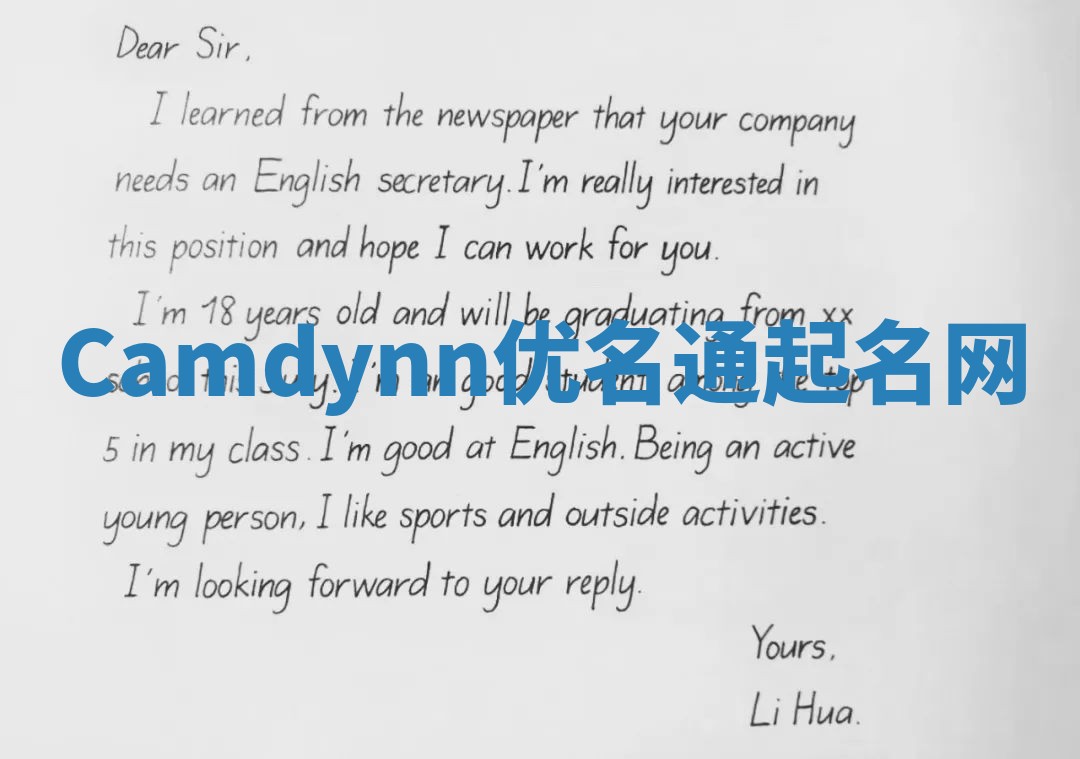 Dear Sir,
I learned from the newspaper that your company
needs an English secretary. I'm really interested in
this position and hope I can work for you.
I'm 18 years old and will be graduating from xx
Camdynn优名通起名网
school this July. I'm a good student among the top
5 in my class. I'm good at English. Being an active
young person, I like sports and outside activities.
I'm looking forward to your reply.
Yours,
Li Hua.